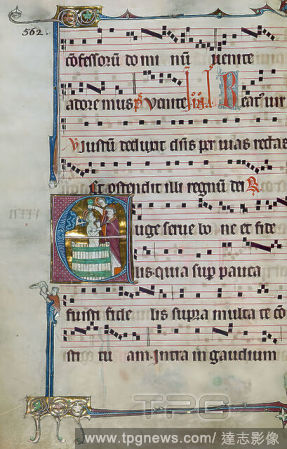 562.
cõfessorũ do mi nũ uenite
adore mus p̃s Venite Beat' uir
Justum deduxit dñs per uias rectas
Et ostendit illi regnũ dei R
Euge serue bo ne et fide
lis quia sup pauca
fuisti fide lis supra multa te cõ
sti tu am Intra in gaudium
TPG
www.tpgnews.com/ 達志影像